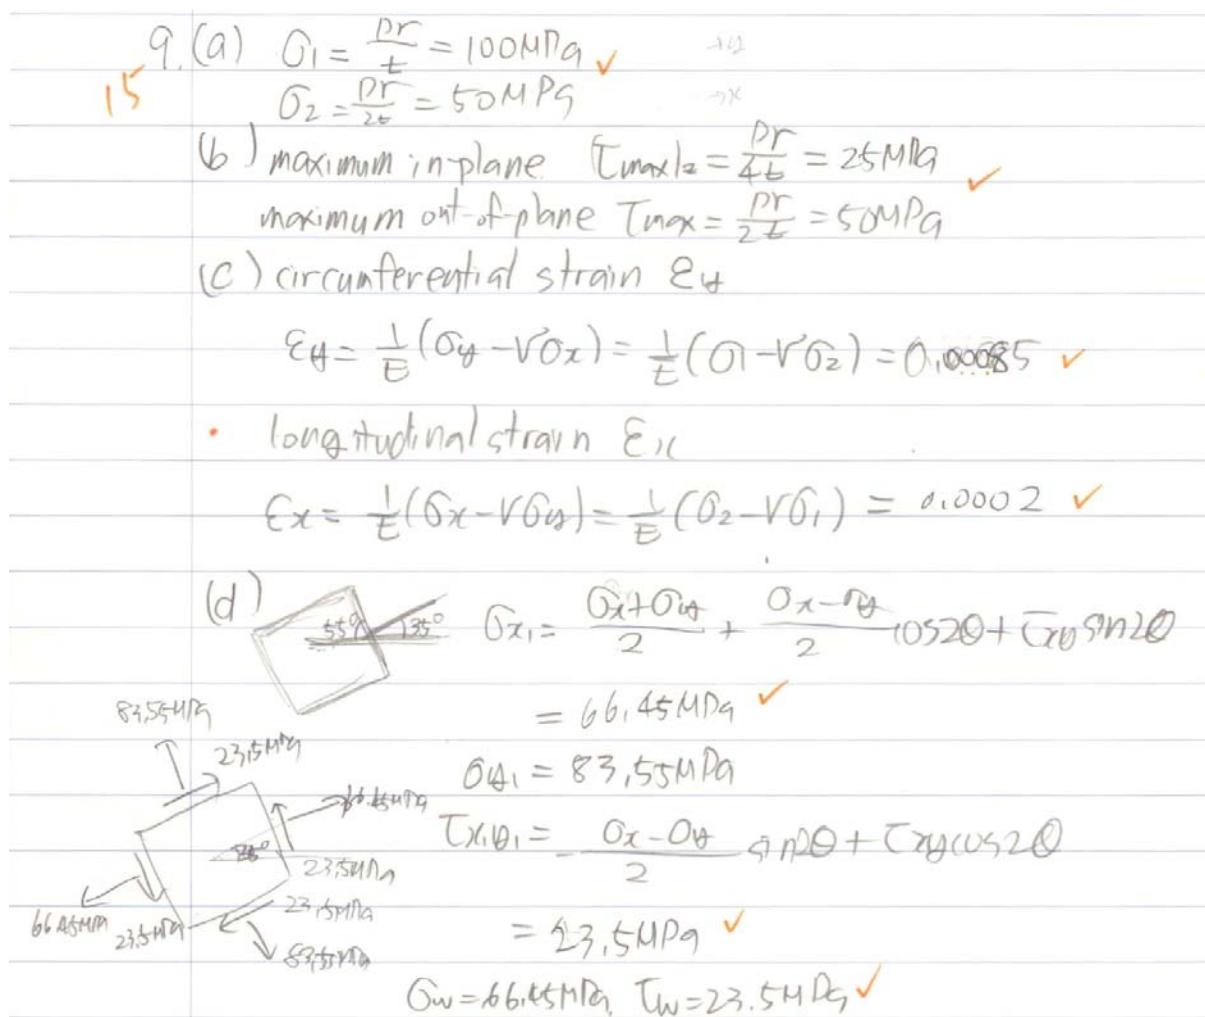 9.(a) σ1 = pr/t = 100MPa ✓
15
→y
σ2 = pr/2t = 50MPa
→x
(b) maximum in-plane (τmax)z = pr/4t = 25MPa
✓
maximum out-of-plane τmax = pr/2t = 50MPa
(c) circumferential strain εy
εy = 1/E (σy - νσx) = 1/E (σ1 - νσ2) = 0.00085 ✓
• longitudinal strain εx
εx = 1/E (σx - νσy) = 1/E (σ2 - νσ1) = 0.0002 ✓
(d)
55° 35°
σx1 = (σx+σy)/2 + (σx-σy)/2 cos2θ + τxy sin2θ
= 66.45MPa ✓
83.55MPa
23.5MPa
σy1 = 83.55MPa
66.45MPa
τx1y1 = - (σx-σy)/2 sin2θ + τxy cos2θ
23.5MPa
23.5MPa
66.45MPa 23.5MPa
83.55MPa
= 23.5MPa ✓
σw = 66.45MPa, τw = 23.5MPa ✓